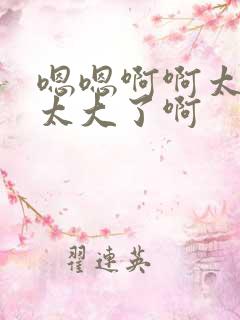 嗯嗯啊啊太
太大了啊
翟连英